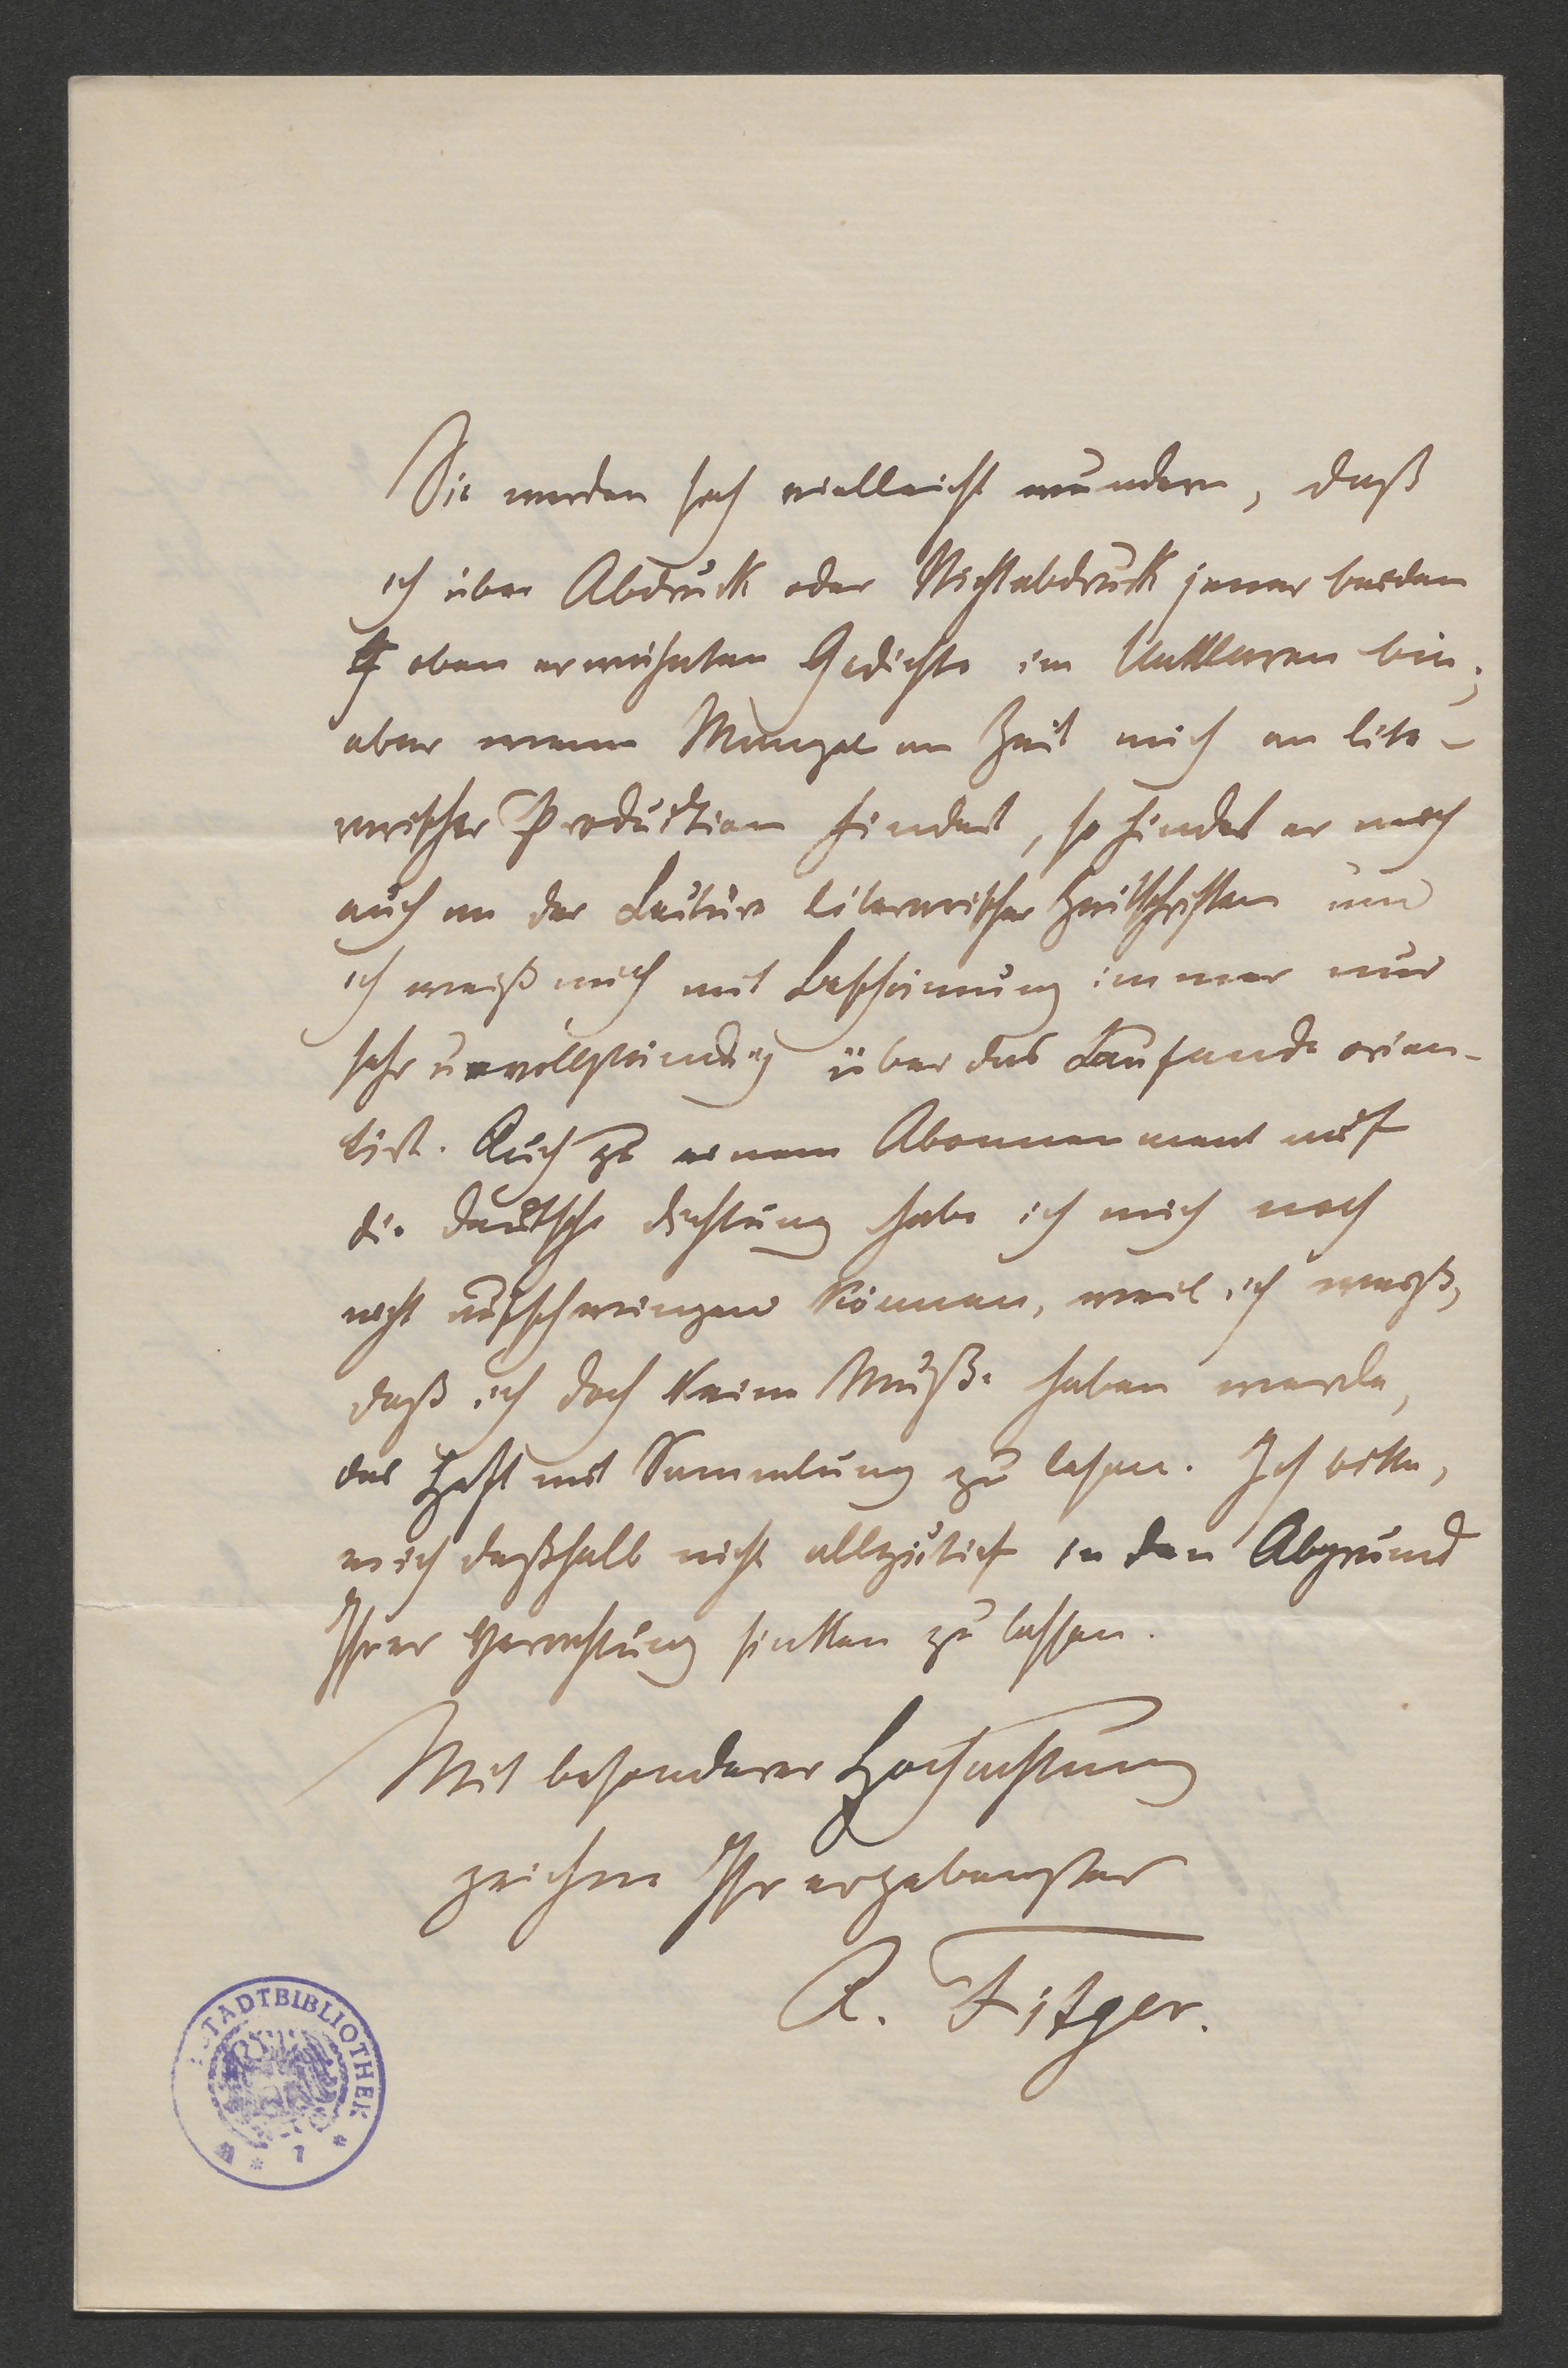 Sie werden sich vielleicht wundern, daß
ich über Abdruck oder Nichtabdruck jener beiden
oben erwähnten Gedichte im Unklaren bin;
aber wenn Mangel an Zeit mich an lite-
rarischer Production hindert, so hindert er mich
auch an der Lectüre literarischer Zeitschriften und
ich weiß mich mit Beschämung immer nur
sehr unvollständig über das Laufende orien-
tirt. Auch zu einem Abonnenment auf
die deutsche Dichtung habe ich mich noch
nicht aufschwingen können, weil ich weiß,
daß ich doch keine Muße haben werde,
das Heft mit Sammlung zu lesen. Ich bitte,
mich deßhalb nicht allzutief in den Abgrund
Ihrer Verachtung sinken zu lassen.
Mit besonderer Hochachtung
zeichne Ihr ergebenster
A. Fitger.
STADTBIBLIOTHEK
* 1 *